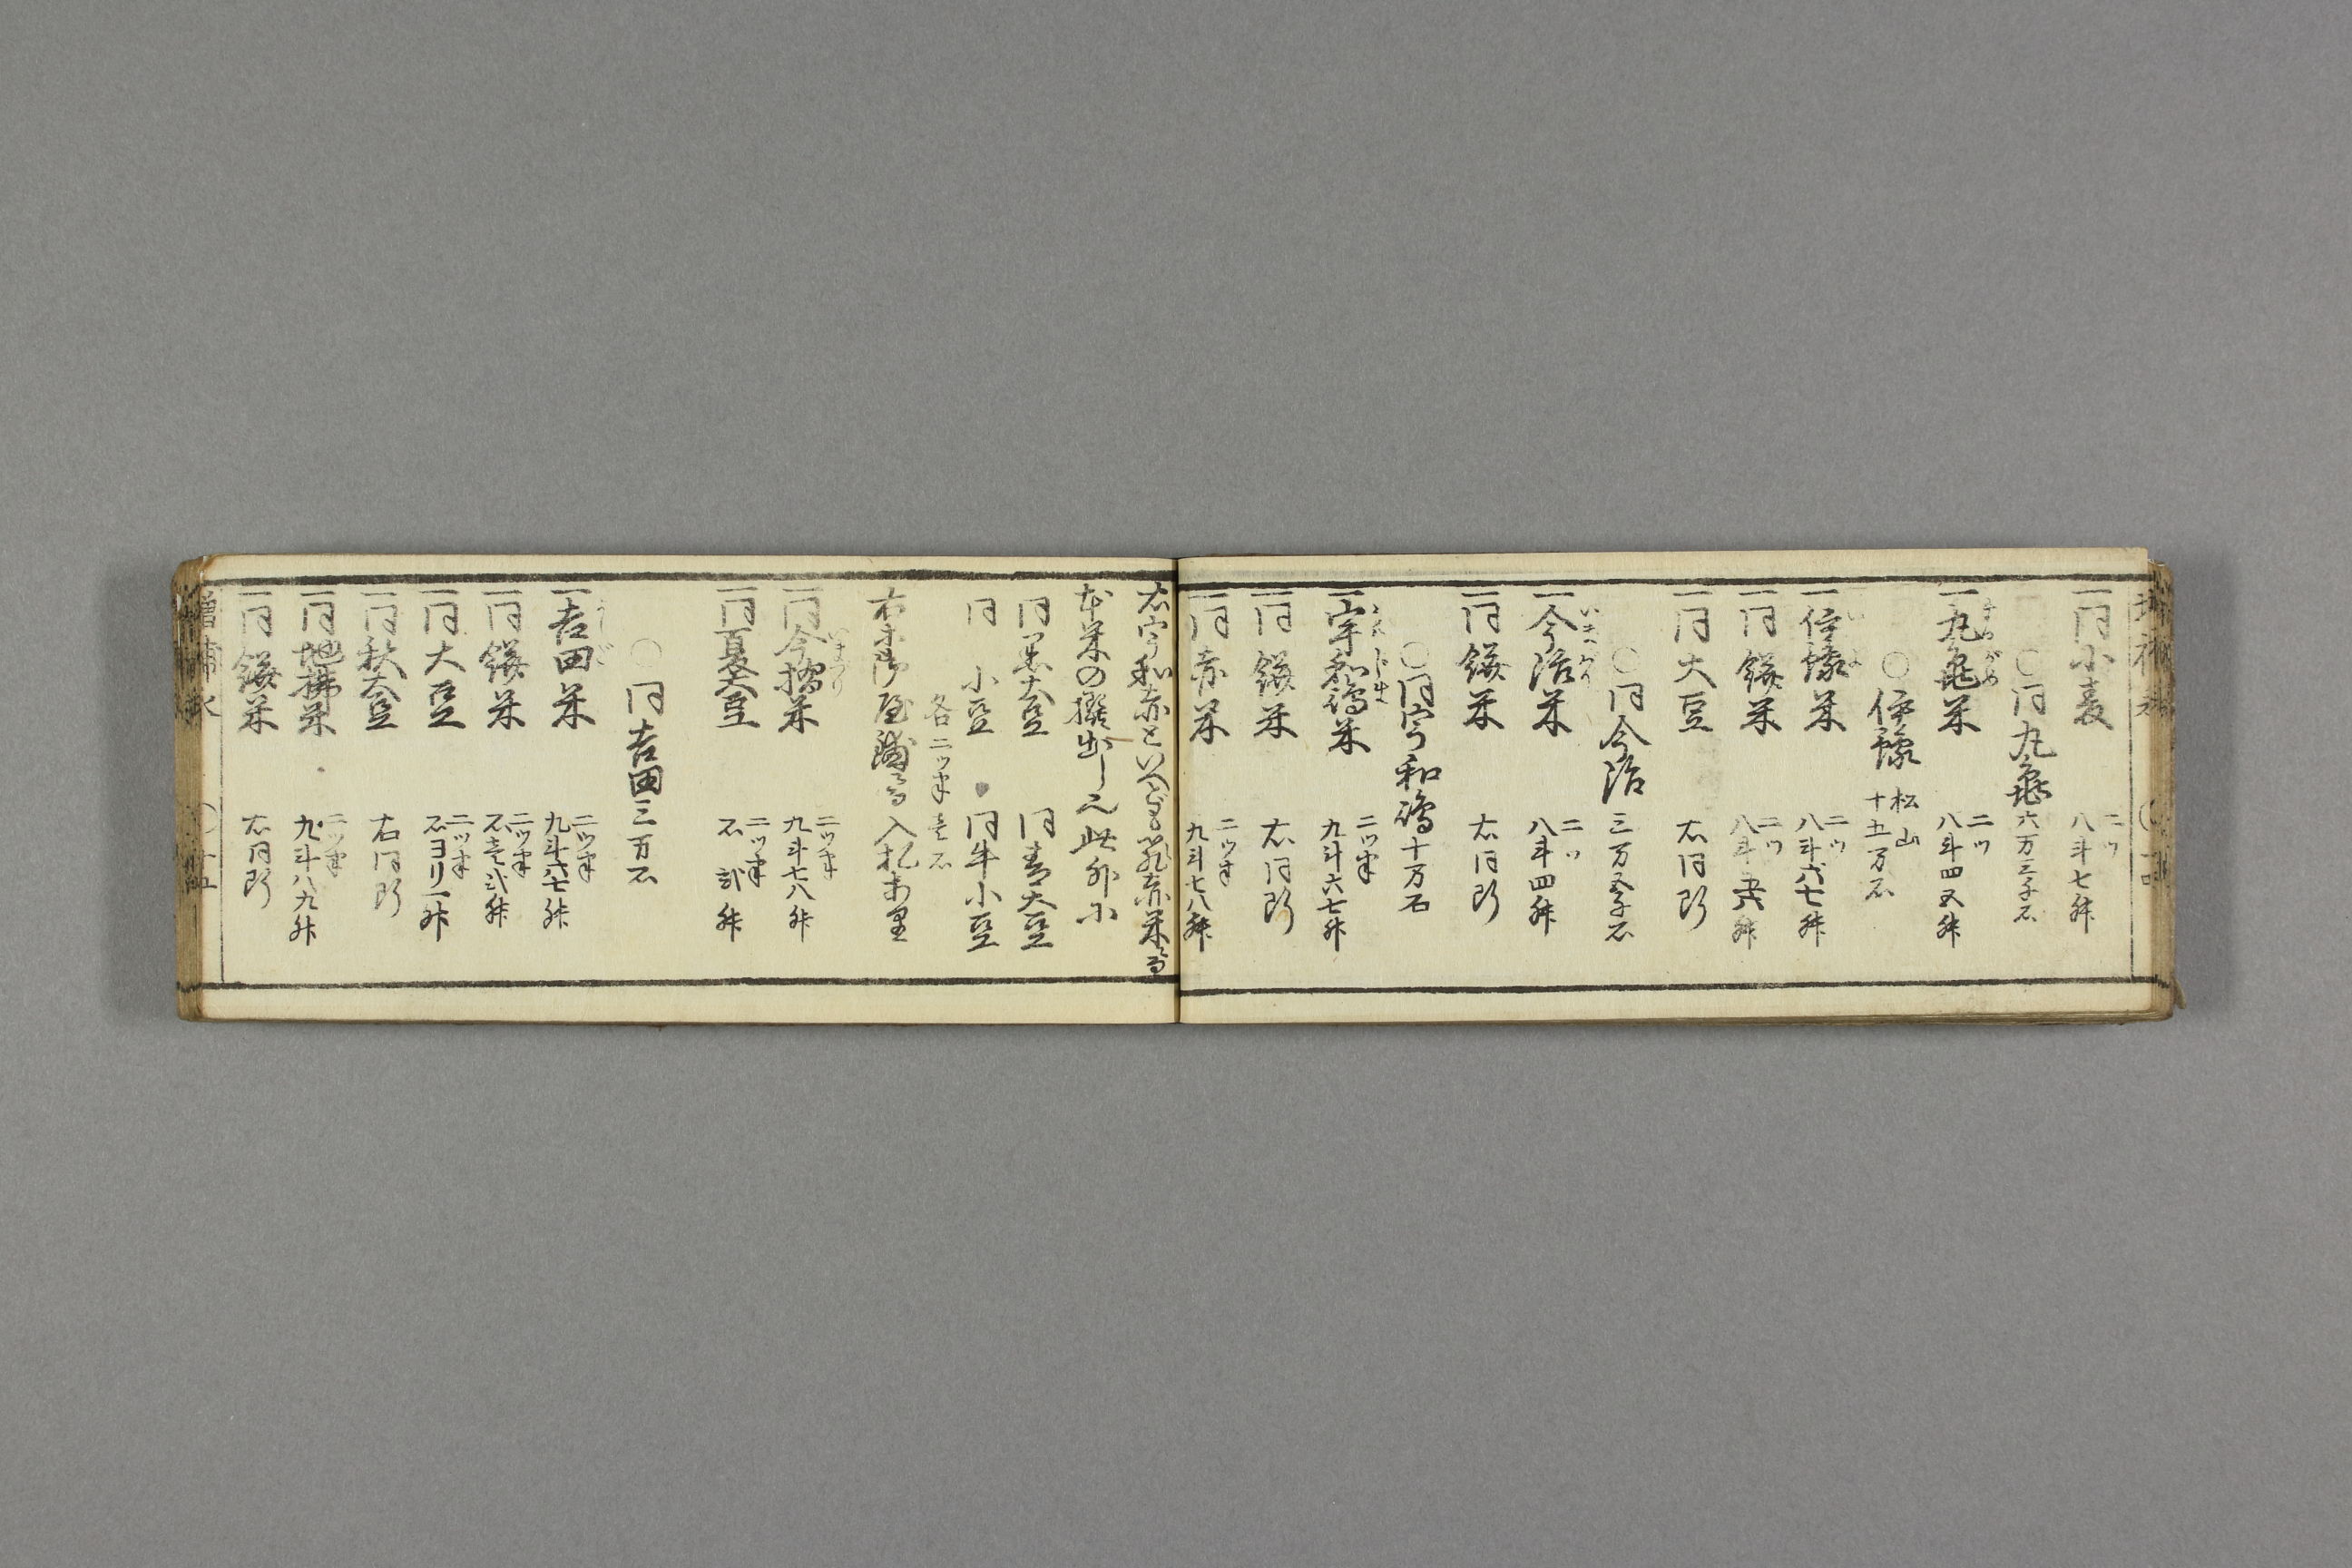 一同小麦 二ツ 八斗七舛
○同丸亀 六万三千石
一丸亀米 二ツ 八斗四五舛
○伊豫 松山 十五万石
一伊豫米 二ツ 八斗六七舛
一同餅米 二ツ 八斗五六舛
一同大豆 右同断
○同今治 三万五千石
一今治米 二ツ 八斗四舛
一同餅米 右同断
○同宇和嶋 十万石
一宇和嶋米 二ツ半 九斗六七舛
一同餅米 右同断
一同赤米 二ツ半 九斗七八舛
右宇和赤といへども
本米の撰出し也此外ニ
同黒大豆 同青大豆
同 小豆 同牛小豆
各二ツ半 壱石
入札あり
一同今摺米 二ツ半 九斗七八舛
一同夏大豆 二ツ半 石 弐舛
○同吉田 三万石
一吉田米 二ツ半 九斗六七舛
一同餅米 二ツ半 石壱弐舛
一同大豆 二ツ半 石ヨリ一舛
一同秋大豆 右同断
一同地拂米 二ツ半 九斗八九舛
一同餅米 右同断